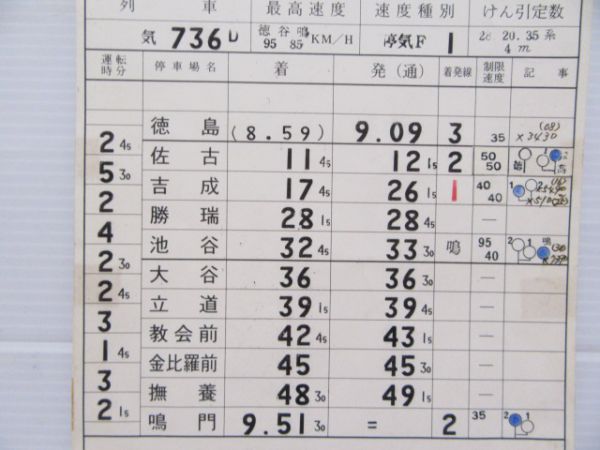 列 車 最高速度 速度種別 けん引定数
気 736D 徳谷鳴 95 85 KM/H 停気F 1 20.35系 4m
運転時分 停車場名 着 発(通) 着発線 制限速度 記事
徳島 (8.59) 9.09 3 35 (08) ×3430
2 45
佐古 11 45 12 15 2 50 50
5 30
吉成 17 45 26 15 1 40 40
2
勝瑞 28 15 28 45 —
4
池谷 32 45 33 30 鳴 95 40 2 1 鳴
2 30
大谷 36 36 30 —
2 45
立道 39 15 39 45 —
3
教会前 42 45 43 15 —
1 45
金比羅前 45 45 30 —
3
撫養 48 30 49 15 —
2 15
鳴門 9.51 30 = 2 35 2 1